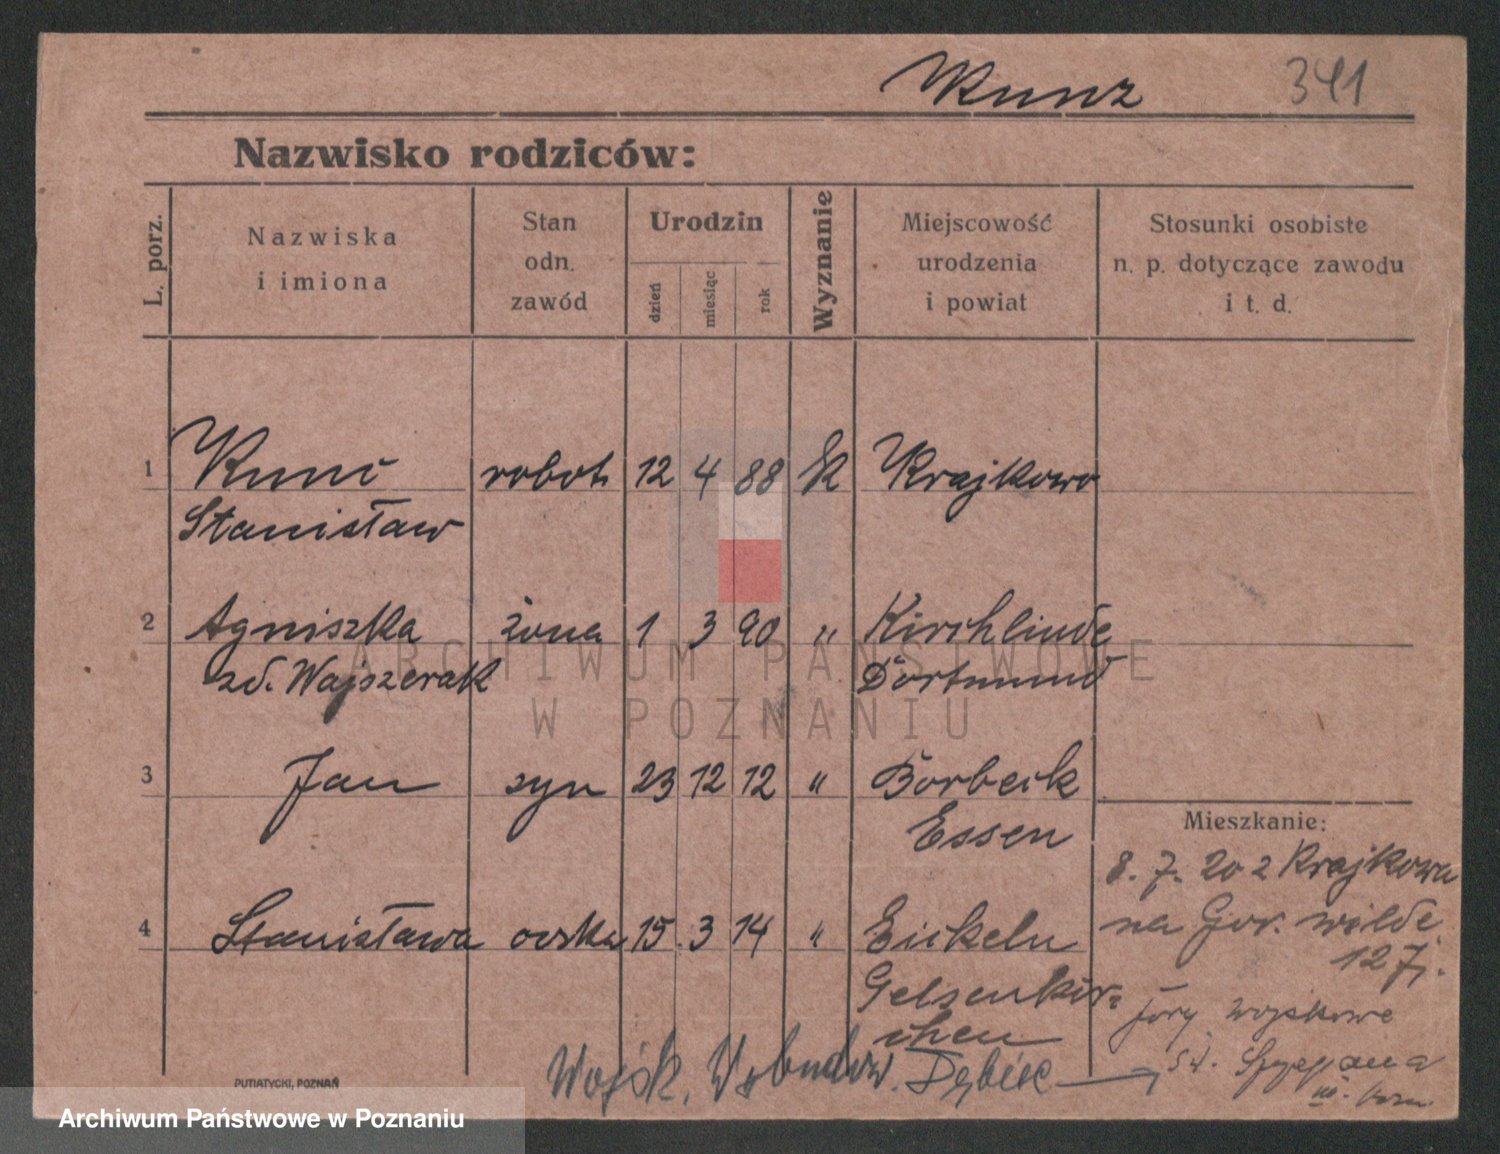 Kunz 341
Nazwisko rodziców:
L. porz.
Nazwiska
i imiona
Stan
odn.
zawód
Urodzin
dzień
miesiąc
rok
Wyznanie
Miejscowość
urodzenia
i powiat
Stosunki osobiste
n. p. dotyczące zawodu
i t. d.
1 Kunc robot. 12 4 88 K Krajkowo
Stanisław
2 Agniszka żona 1 3 90 " Kirchlinde
zd. Wajszerak Dortmund
3 Jan syn 23 12 12 " Borbeck
Essen
Mieszkanie:
8. 7. 20 z Krajkowa
na Gór. wilde
127.
4 Stanisława córka 15 3 14 " Eickeln
Gelsenkir-
chen
wojskowe
Wojsk. Wybudow. Dębiec
św. Szczepana
PUTIATYCKI, POZNAŃ
ARCHIWUM PAŃSTWOWE
W POZNANIU
Archiwum Państwowe w Poznaniu